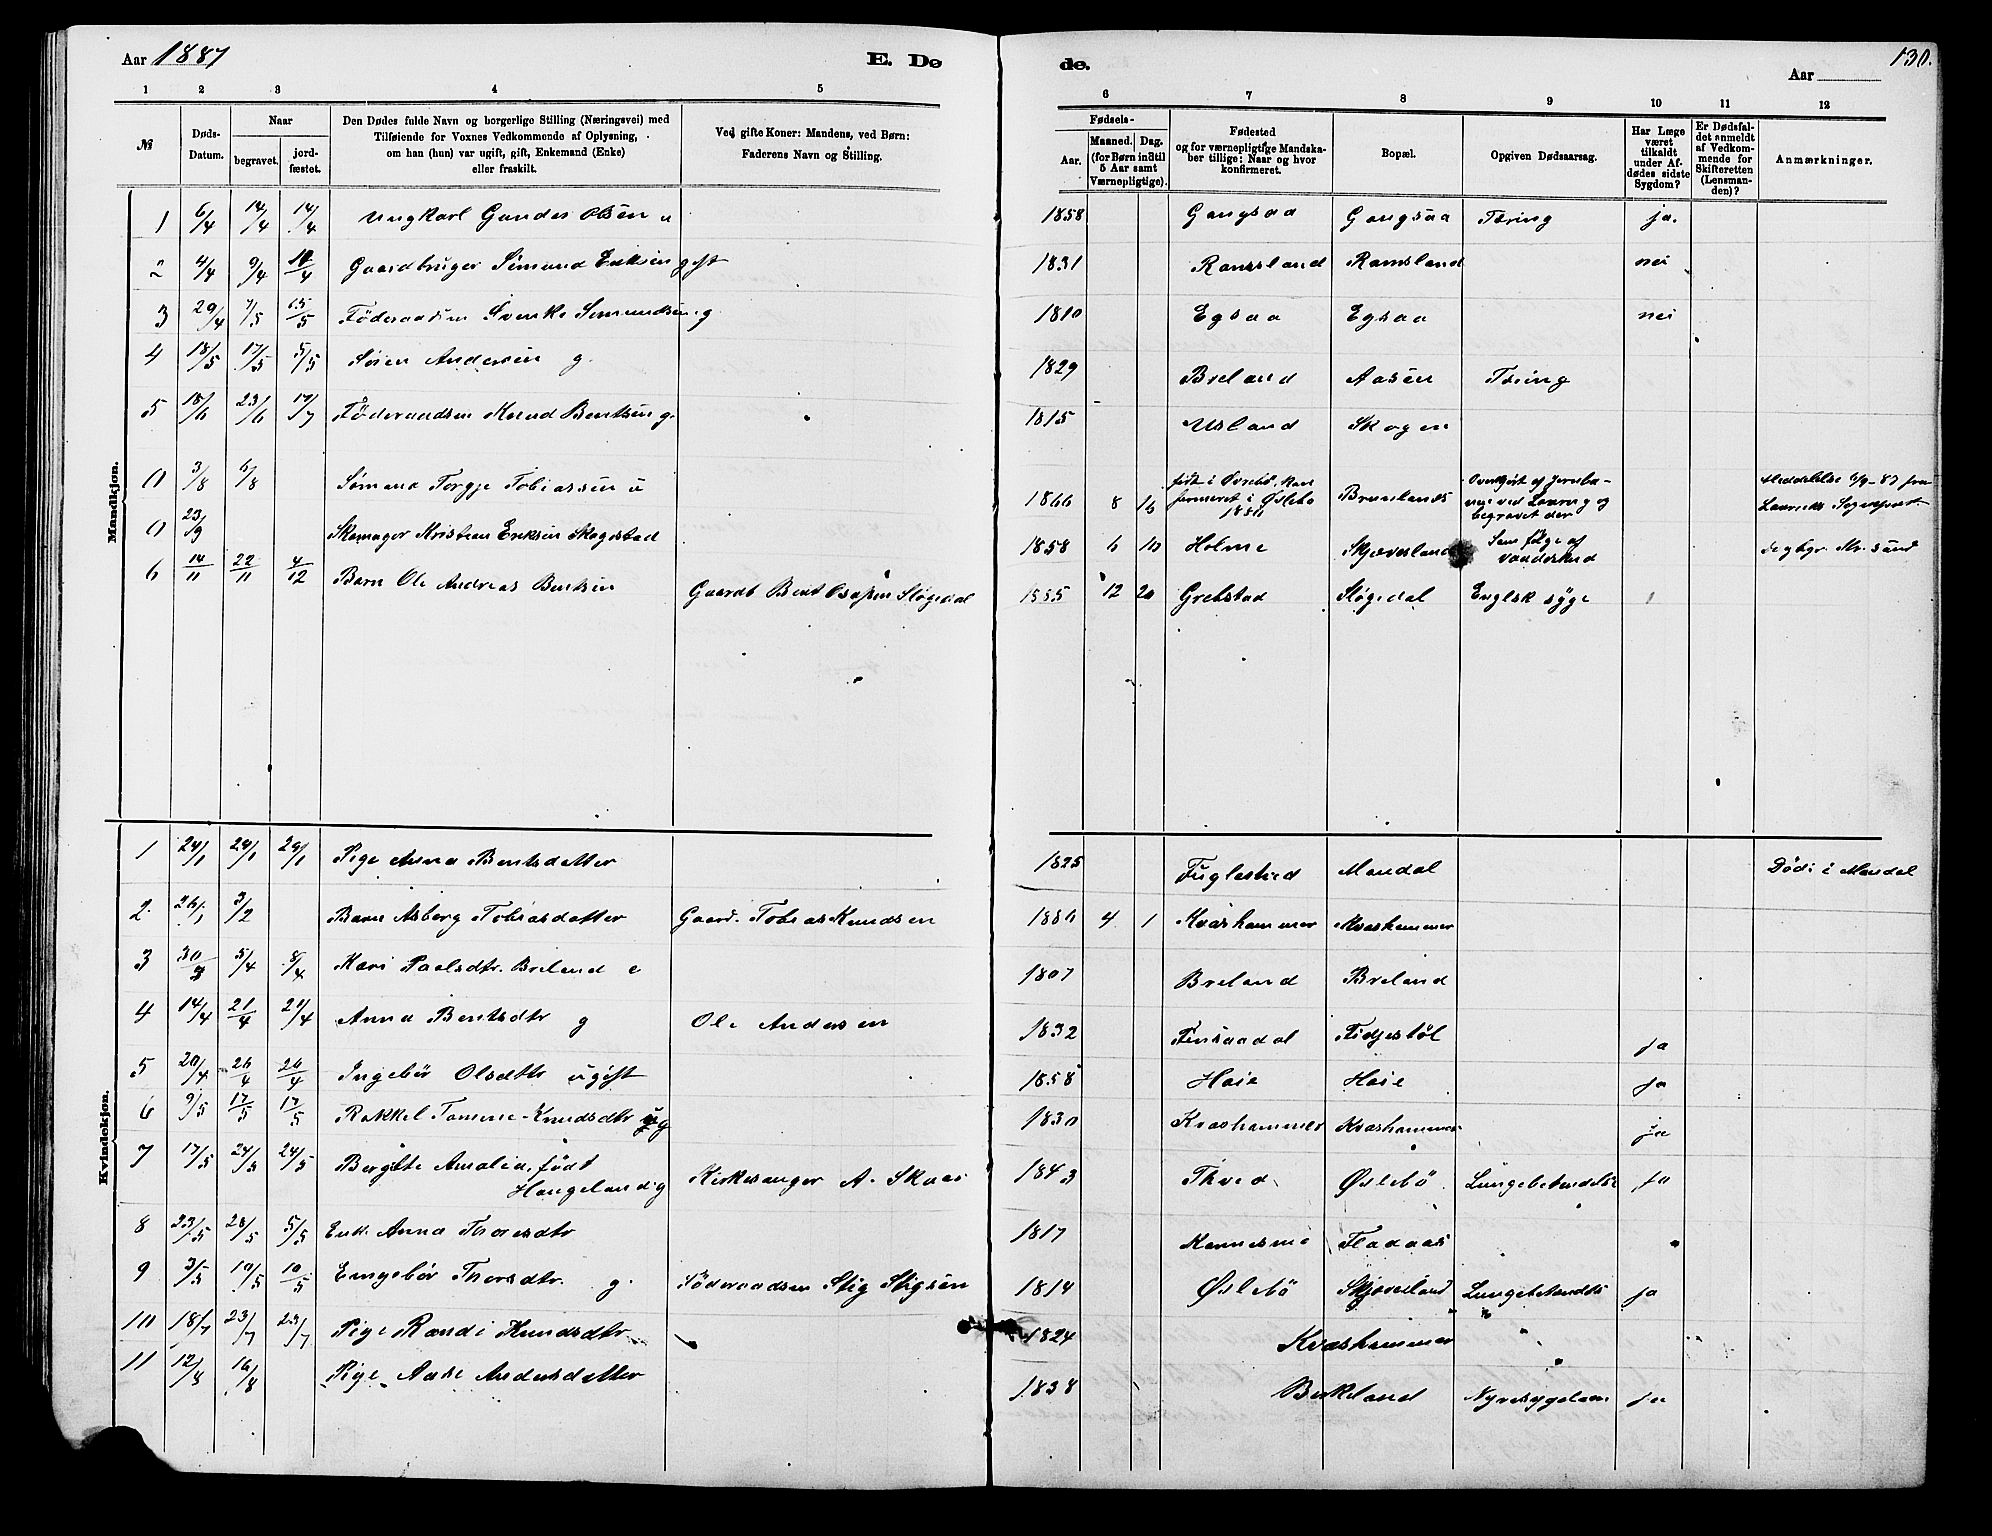 Aar 1887
E. Dø
de.
Aar
130.
1 2 3 4 5
6 7 8 9 10 11 12
№
Døds-
Datum.
Naar
begravet.
jord-
fæstet.
Den Dødes fulde Navn og borgerlige Stilling (Næringsvei) med
Tilføiende for Voxnes Vedkommende af Oplysning,
om han (hun) var ugift, gift, Enkemand (Enke)
eller fraskilt.
Ved gifte Koner: Mandens, ved Børn:
Faderens Navn og Stilling.
Fødsels-
Aar.
Maaned.
Dag.
(for Børn indtil
5 Aar samt
Værnepligtige).
Fødested
og for værnepligtige Mandska-
ber tillige: Naar og hvor
konfirmeret.
Bopæl.
Opgiven Dødsaarsag.
Har Læge
været
tilkaldt
under Af-
dødes sidste
Sygdom?
Er Dødsfal-
det anmeldt
af Vedkom-
mende for
Skifteretten
(Lensman-
den)?
Anmærkninger.
Mandkjøn.
1 6/4 14/4 14/4 Ungkarl Gunder Olsen u 1858 Gangsaa Gangsaa Tæring ja.
2 4/4 9/4 Gaardbruger Sömund Eriksen gift 1831 Ramsland Ramsland nei
3 29/4 7/5 15/5 Föderaadsm Svenke Sömundsen g 1810 Egsaa Egsaa nei
4 18/5 17/5 5/5 Sören Andersen g. 1829 Breland Aasen Tæring
5 18/6 23/6 17/7 Föderaadsm Knud Bentsen g. 1815 Usland Skogen
0 3/8 6/8 Sømand Torgje Tobiassen u 1866 8 16 født i Øvrebö, kon
firmeret i Øslebø
Overkjørt af Jernba-
nge ved Laurvig og
begravet der
Meddelelse 6/9-87 fra
Laurviks Sogneprest
0 23/9 Skomager Kristian Eriksen Skogstad 1858 6 10 Holme Skjæveland Som følge af
6 14/11 22/11 4/12 Barn Ole Andreas Bentsen Gaardb Bent Slögedal 1885 12 20 Grebstad Slögedal Englsk syge
Kvindekjøn.
1 24/1 29/1 29/1 Pige Anna Bentsdatter 1825 Fuglestved Mandal Död i Mandal
2. 26/1 3/2 Barn Asberg Tobiasdatter Gaard. Tobias Knudsen 1886 4 1 Kvashammer Kvashammer
3 30/3 5/4 8/4 Kari Paalsdtr. Breland e 1807 Breland Breland
4 14/4 21/4 21/4 Anna Bentsdtr g Ole Andersen 1832 Finsaadal Fidjestöl ja
5 20/4 26/4 26/4 Ingebör Olsdtr ugift 1858 Höie Höie ja
6 9/5 17/5 17/5 Rakkel Tomine Knudsdtr ug 1830 Kvashammer Kvashammer ja
7 17/5 24/5 24/5 Bergite Amalia, født
Haugeland g Kirkesanger A. Skaar 1843 Tved Øslebö Lungebetændelse ja
8 23/5 28/5 5/5 Enk. Anna Thoresdtr 1817 Kennesmo Fladaas
9 3/5 10/5 10/5 Engebör Thorsdtr. g. Föderaadsm Stig Stigsen 1814 Øslebö Skjæveland Lungebetændelse ja
10 18/7 23/7 23/7 Pige Randi Knudsdtr 1824 Kvashammer
11 12/8 16/8 Pige Aase Andersdatter 1838 Birkeland Nyresygdom ja